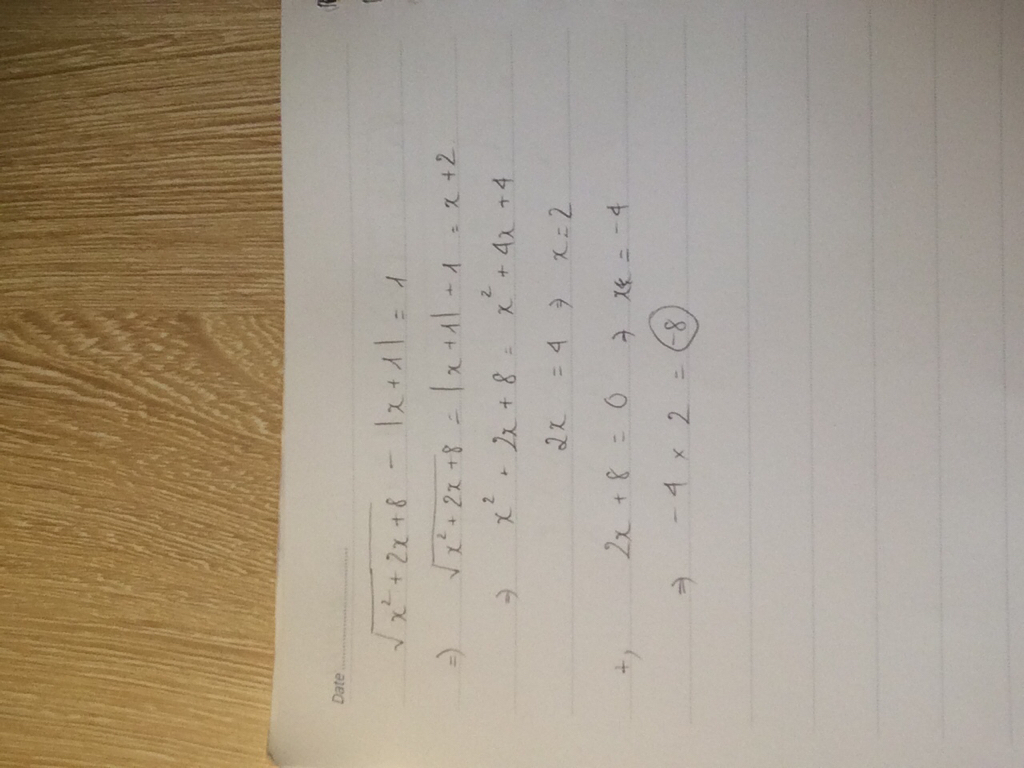 Date
√(x² + 2x + 8) - |x + 1| = 1
=) √(x² + 2x + 8) = |x + 1| + 1 = x + 2
=) x² + 2x + 8 = x² + 4x + 4
2x = 4 => x = 2
+, 2x + 8 = 0 => x = -4
=) -4 × 2 = -8